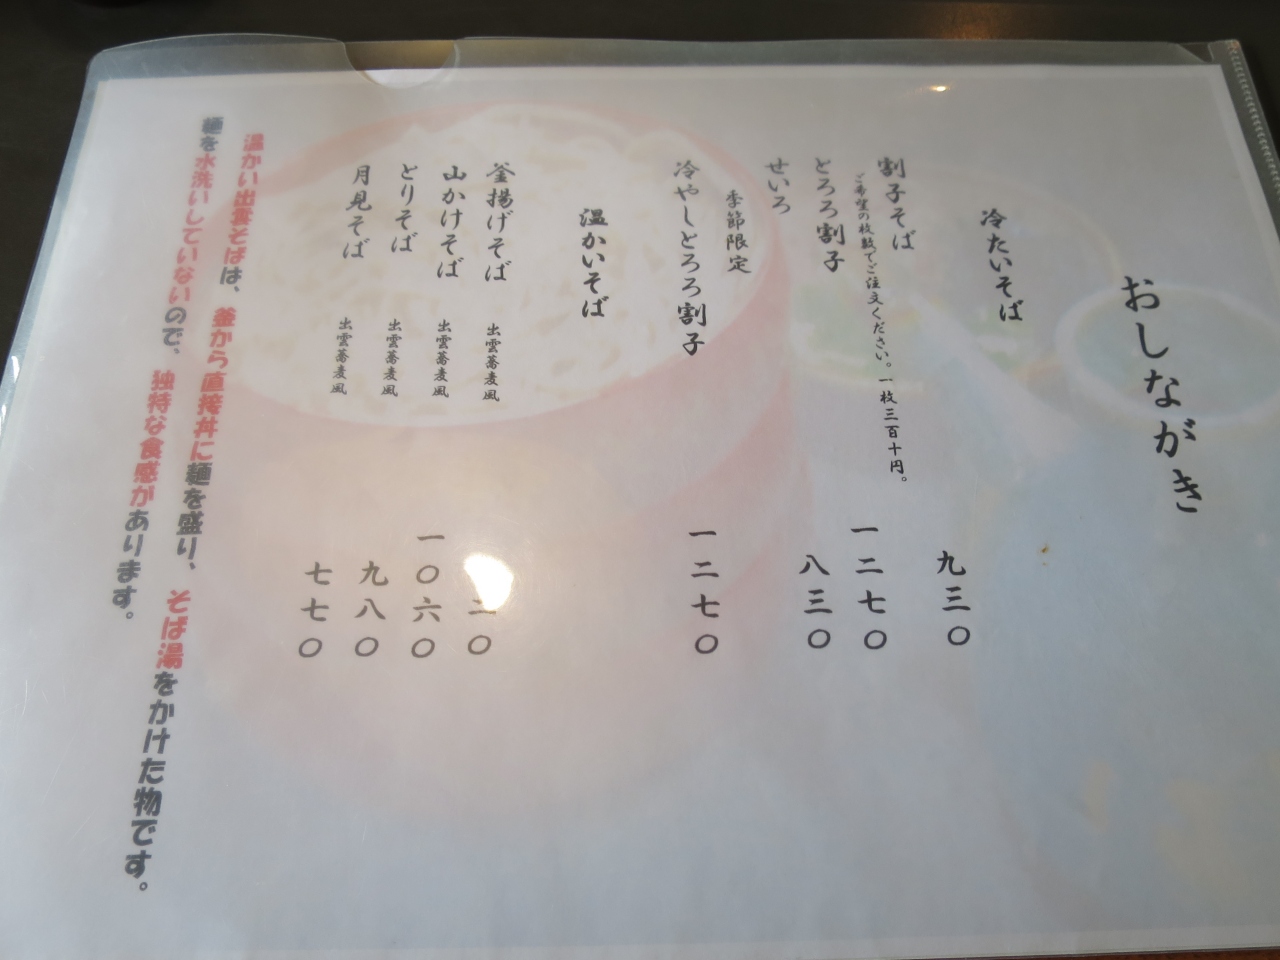 おしながき
冷たいそば
割子そば 九三〇
ご希望の枚数でご注文ください。一枚三百十円。
とろろ割子 一二七〇
せいろ 八三〇
季節限定
冷やしとろろ割子 一二七〇
温かいそば
釜揚げそば 出雲蕎麦風 二〇
山かけそば 出雲蕎麦風 一〇六〇
とりそば 出雲蕎麦風 九八〇
月見そば 出雲蕎麦風 七七〇
温かい出雲そばは、釜から直接丼に麺を盛り、そば湯をかけた物です。
麺を水洗いしていないので、独特な食感があります。